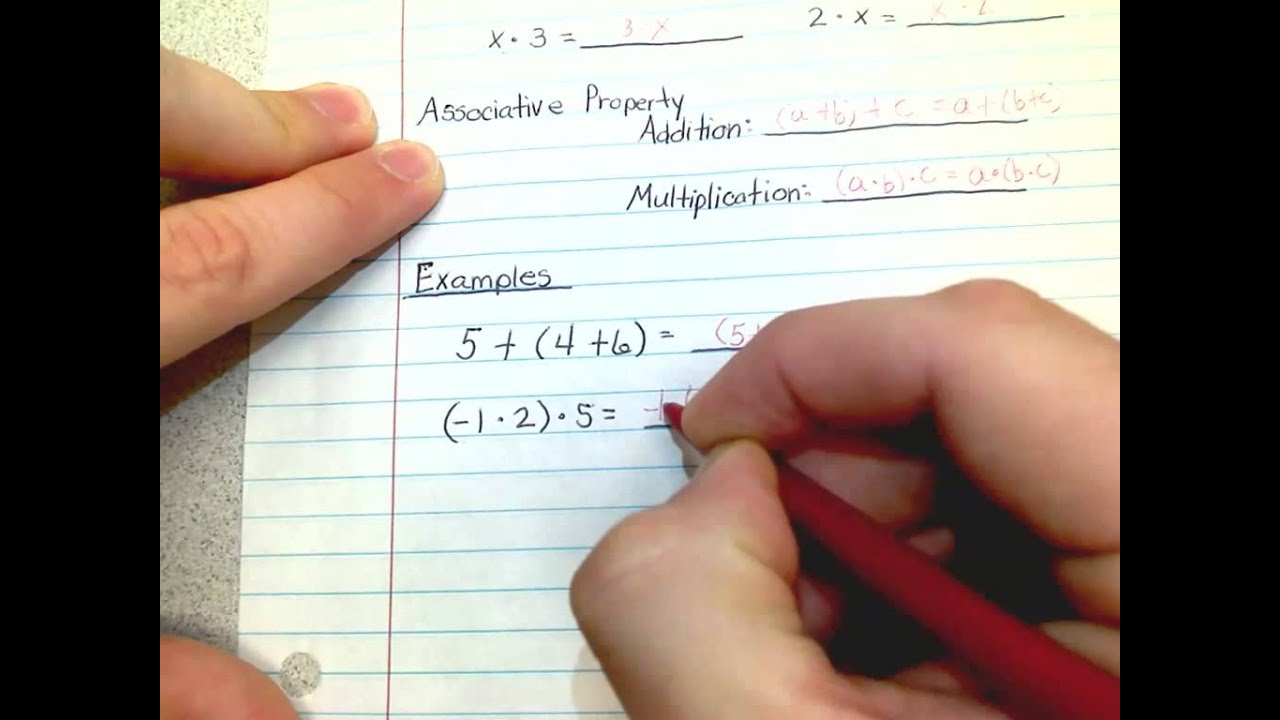 x · 3 = 3 x
2 · x = x · 2
Associative Property
Addition: (a + b) + c = a + (b + c)
Multiplication: (a · b) · c = a · (b · c)
Examples
5 + (4 + 6) = (5 +
(-1 · 2) · 5 = -1 (